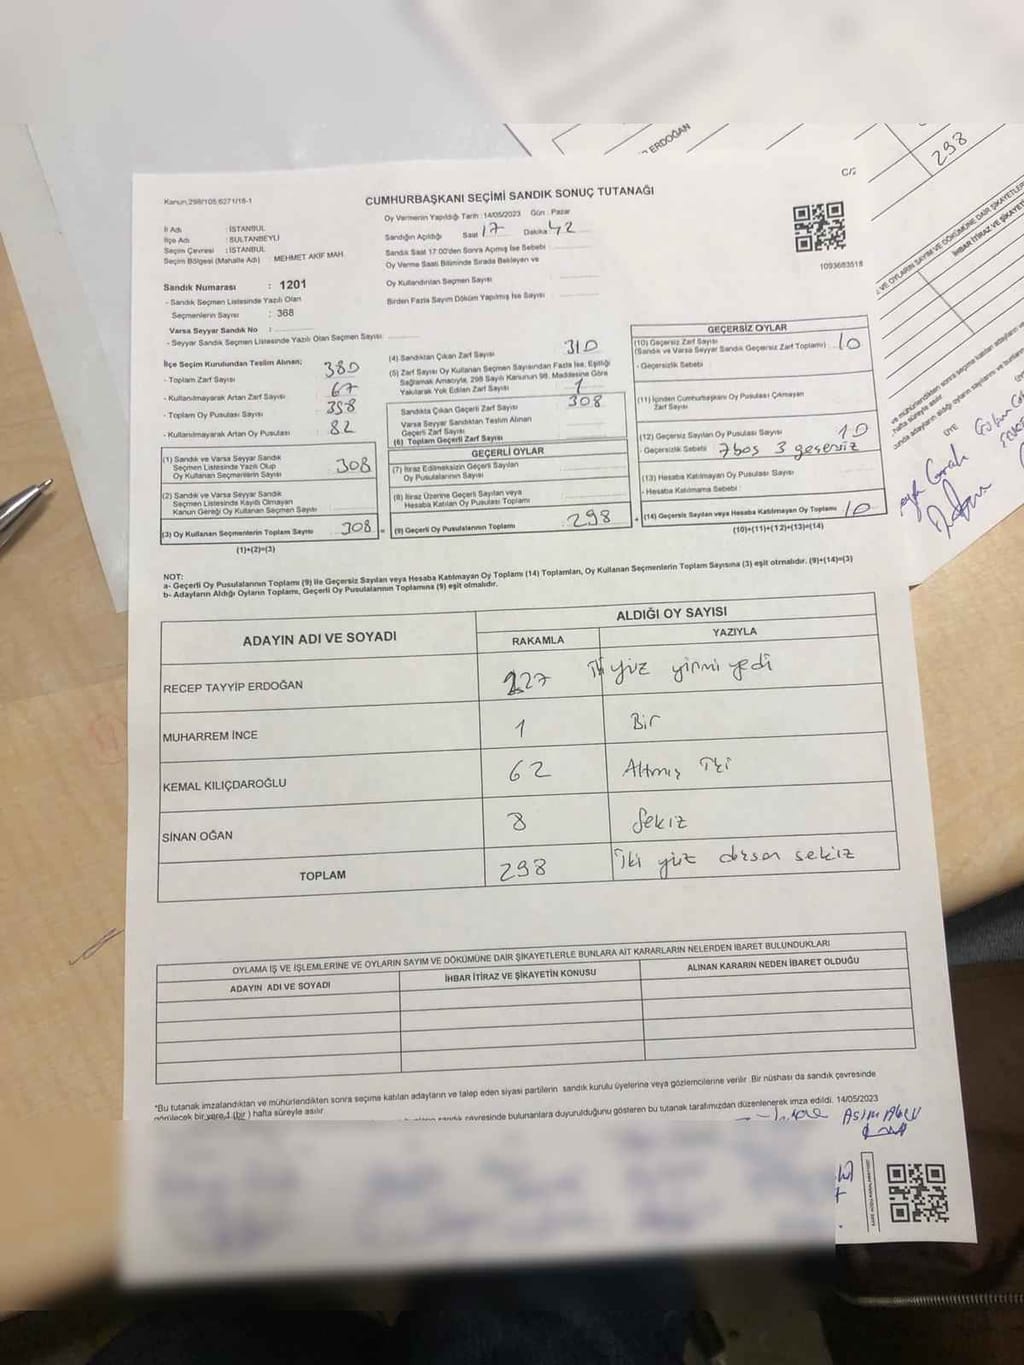 ERDOĞAN
298
C/2
Kanun,298/105,6271/16-1
CUMHURBAŞKANI SEÇİMİ SANDIK SONUÇ TUTANAĞI
Oy Vermenin Yapıldığı Tarih : 14/05/2023 Gün : Pazar
İl Adı : İSTANBUL
İlçe Adı : SULTANBEYLİ
Seçim Çevresi : İSTANBUL
Seçim Bölgesi (Mahalle Adı) : MEHMET AKİF MAH.
Sandığın Açıldığı Saat 17 Dakika 42
Sandık Saat 17:00'den Sonra Açılmış İse Sebebi
Oy Verme Saati Bitiminde Sırada Bekleyen ve
Oy Kullandırılan Seçmen Sayısı
Birden Fazla Sayım Döküm Yapılmış İse Sayısı
1093683518
Sandık Numarası : 1201
- Sandık Seçmen Listesinde Yazılı Olan
Seçmenlerin Sayısı : 368
Varsa Seyyar Sandık No :
- Seyyar Sandık Seçmen Listesinde Yazılı Olan Seçmen Sayısı :
İlçe Seçim Kurulundan Teslim Alınan;
- Toplam Zarf Sayısı 380
- Kullanılmayarak Artan Zarf Sayısı 67
- Toplam Oy Pusulası Sayısı 398
- Kullanılmayarak Artan Oy Pusulası 82
(1) Sandık ve Varsa Seyyar Sandık
Seçmen Listesinde Yazılı Olup
Oy Kullanan Seçmenlerin Sayısı 308
(2) Sandık ve Varsa Seyyar Sandık
Seçmen Listesinde Kayıtlı Olmayan
Kanun Gereği Oy Kullanan Seçmen Sayısı
(3) Oy Kullanan Seçmenlerin Toplam Sayısı 308
(1)+(2)=(3)
(4) Sandıktan Çıkan Zarf Sayısı 310
(5) Zarf Sayısı Oy Kullanan Seçmen Sayısından Fazla İse, Eşitliği
Sağlamak Amacıyla, 298 Sayılı Kanunun 98. Maddesine Göre
Yakılarak Yok Edilen Zarf Sayısı 1
Sandıkta Çıkan Geçerli Zarf Sayısı 308
Varsa Seyyar Sandıktan Teslim Alınan
Geçerli Zarf Sayısı
(6) Toplam Geçerli Zarf Sayısı
GEÇERLİ OYLAR
(7) İtiraz Edilmeksizin Geçerli Sayılan
Oy Pusulalarının Sayısı
(8) İtiraz Üzerine Geçerli Sayılan veya
Hesaba Katılan Oy Pusulası Toplamı
(9) Geçerli Oy Pusulalarının Toplamı 298
GEÇERSİZ OYLAR
(10) Geçersiz Zarf Sayısı
(Sandık ve Varsa Seyyar Sandık Geçersiz Zarf Toplamı) 10
- Geçersizlik Sebebi :
(11) İçinden Cumhurbaşkanı Oy Pusulası Çıkmayan
Zarf Sayısı
(12) Geçersiz Sayılan Oy Pusulası Sayısı 10
- Geçersizlik Sebebi 7 boş 3 geçersiz
(13) Hesaba Katılmayan Oy Pusulası Sayısı
- Hesaba Katılmama Sebebi :
(14) Geçersiz Sayılan veya Hesaba Katılmayan Oy Toplamı 10
(10)+(11)+(12)+(13)=(14)
NOT:
a- Geçerli Oy Pusulalarının Toplamı (9) ile Geçersiz Sayılan veya Hesaba Katılmayan Oy Toplamı (14) Toplamları, Oy Kullanan Seçmenlerin Toplam Sayısına (3) eşit olmalıdır. (9)+(14)=(3)
b- Adayların Aldığı Oyların Toplamı, Geçerli Oy Pusulalarının Toplamına (9) eşit olmalıdır.
ADAYIN ADI VE SOYADI ALDIĞI OY SAYISI
RAKAMLA YAZIYLA
RECEP TAYYİP ERDOĞAN 227 İki yüz yirmi yedi
MUHARREM İNCE 1 Bir
KEMAL KILIÇDAROĞLU 62 Altmış İki
SİNAN OĞAN 8 Sekiz
TOPLAM 298 İki yüz doksan sekiz
OYLAMA İŞ VE İŞLEMLERİNE VE OYLARIN SAYIM VE DÖKÜMÜNE DAİR ŞİKAYETLERLE BUNLARA AİT KARARLARIN NELERDEN İBARET BULUNDUKLARI
ADAYIN ADI VE SOYADI İHBAR İTİRAZ VE ŞİKAYETİN KONUSU ALINAN KARARIN NEDEN İBARET OLDUĞU
*Bu tutanak imzalandıktan ve mühürlendikten sonra seçime katılan adayların ve talep eden siyasi partilerin sandık kurulu üyelerine veya gözlemcilerine verilir. Bir nüshası da sandık çevresinde
görülecek bir yere 1 (bir) hafta süreyle asılır.
bulunanlara duyurulduğunu gösteren bu tutanak tarafımızdan düzenlenerek imza edildi. 14/05/2023
ÜYE